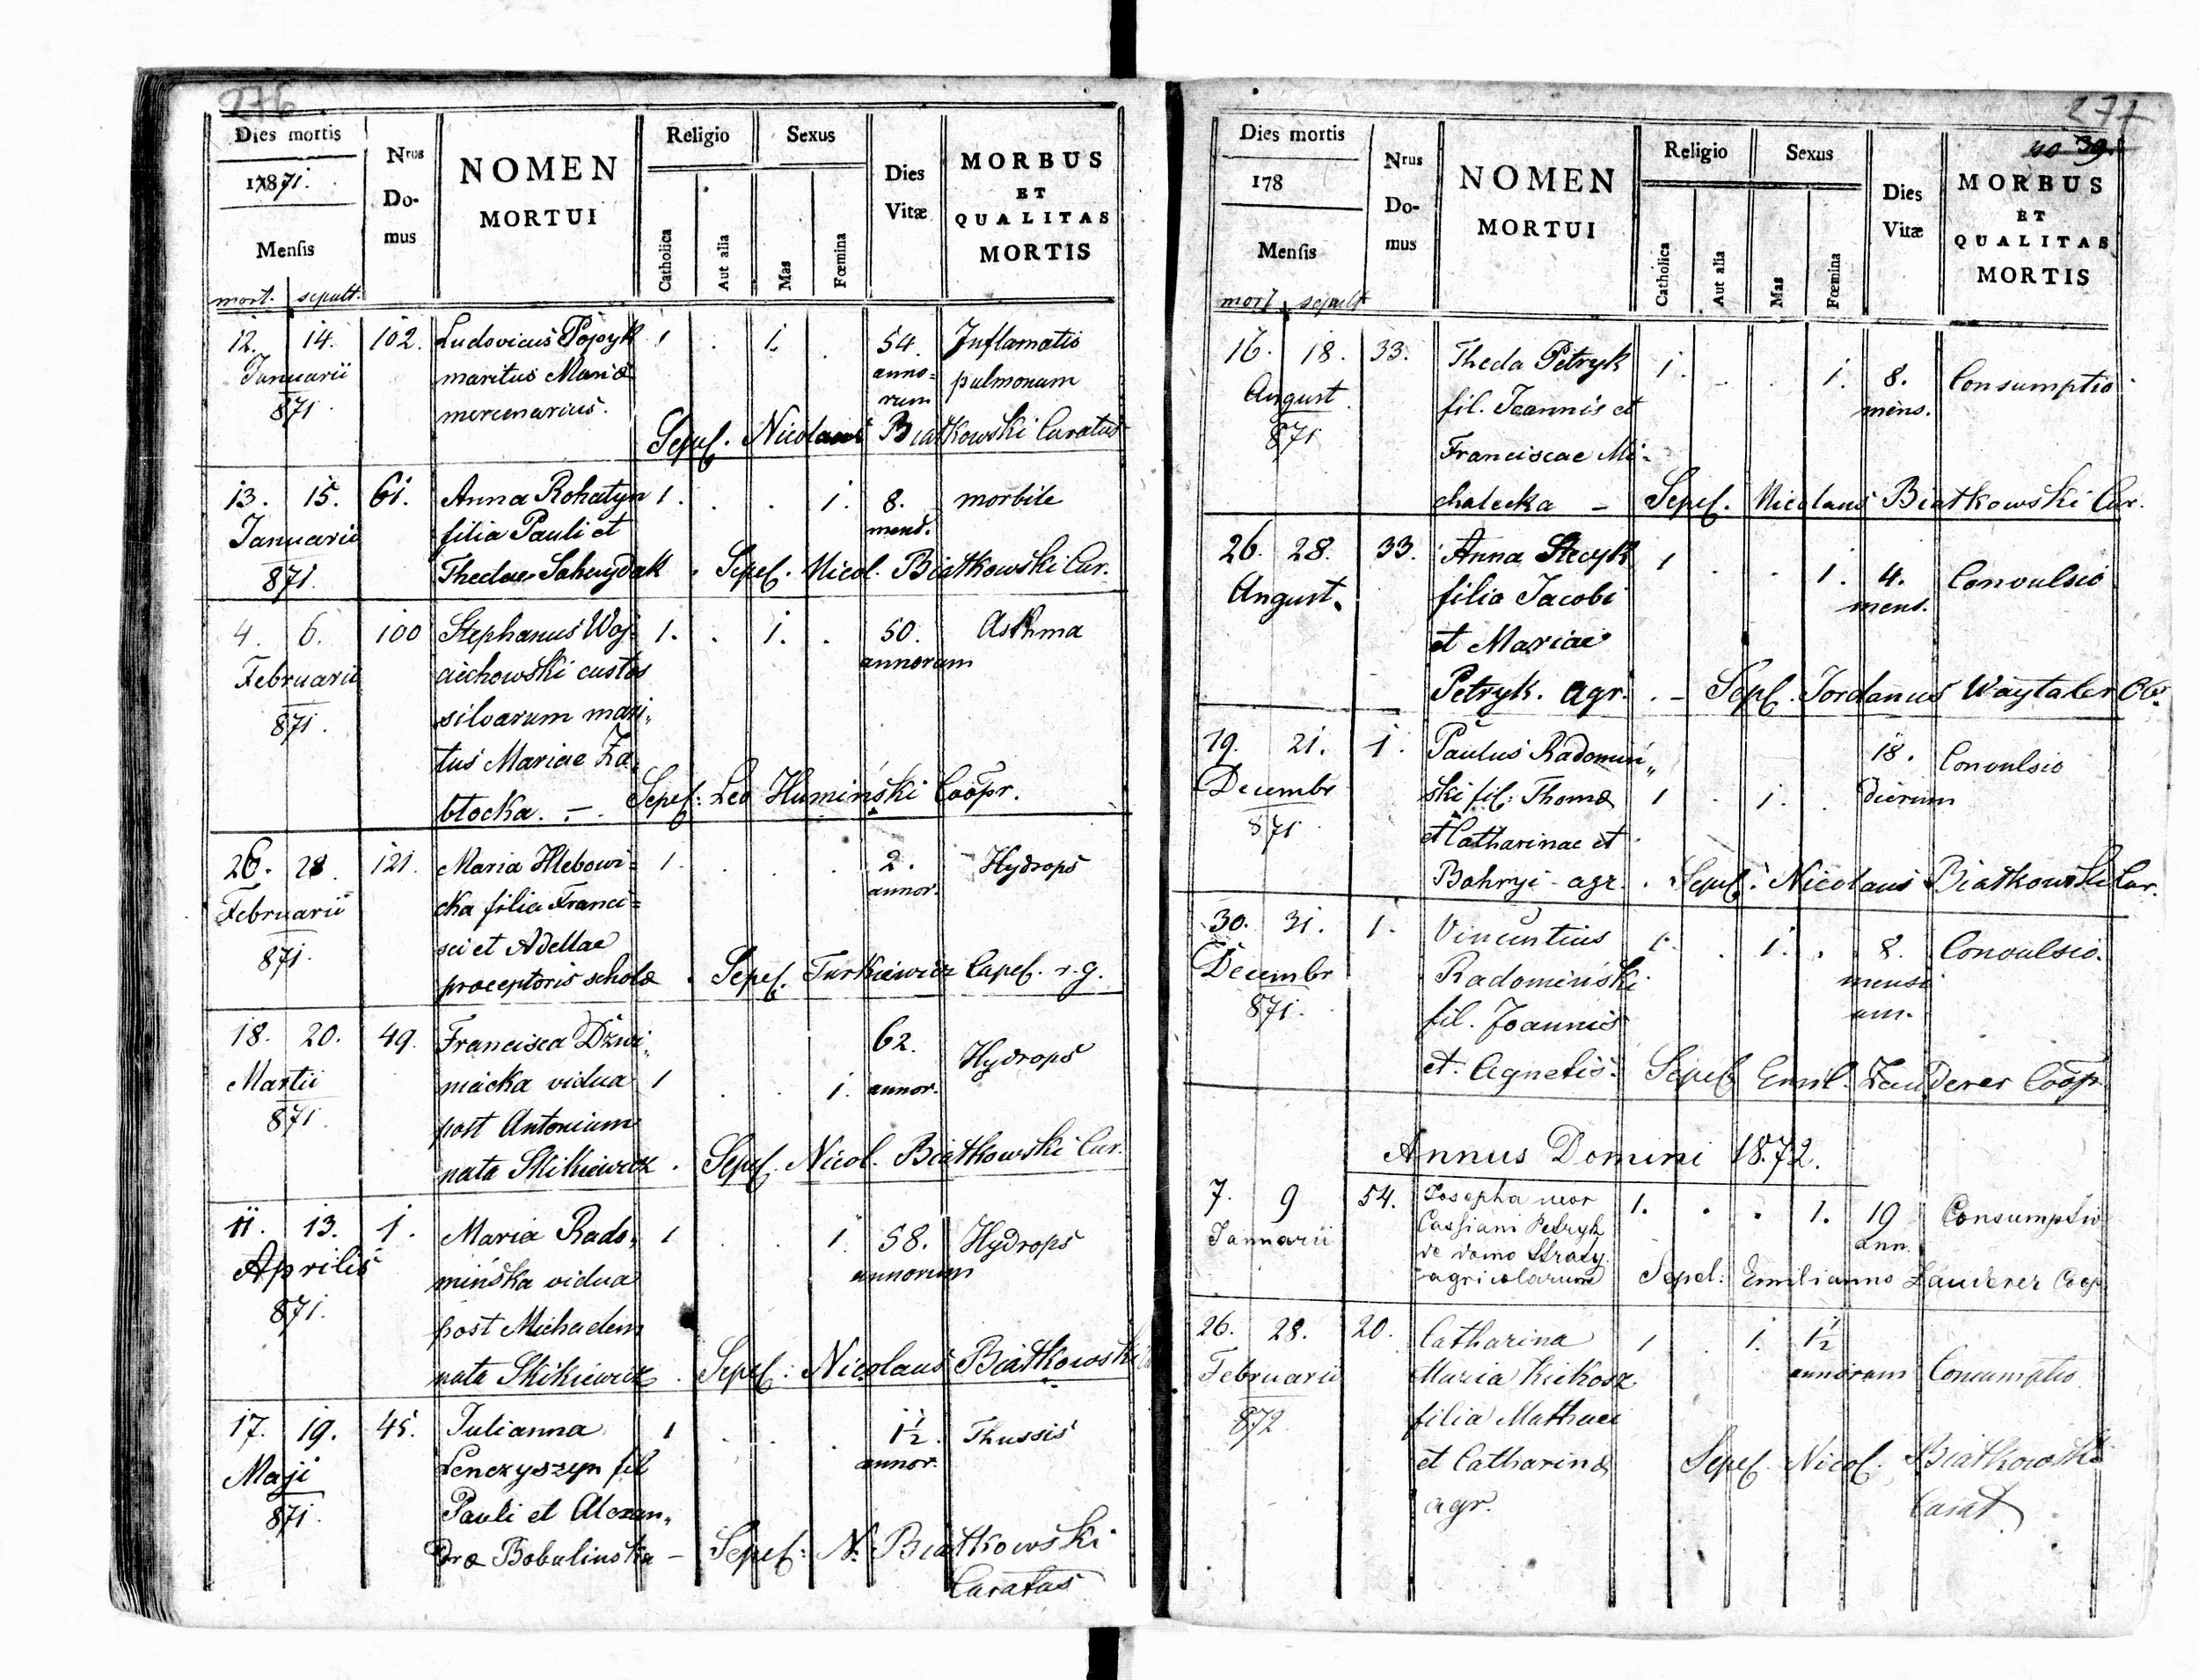 276
Dies mortis
Nrus Domus
NOMEN MORTUI
Religio
Sexus
Dies Vitæ
MORBUS ET QUALITAS MORTIS
17871.
Mensis
Catholica
Aut alia
Mas
Fœmina
mort. sepult.
12. 14. 102. Ludovicus Pojzyk 1 . 1. . 54. Inflamatio
Januarii maritus Mariæ anno= pulmonum
871 mercenarius. rum
Sepel. Nicolaus Białkowski Curatus
13. 15. 61. Anna Rohatyn 1. . . 1. 8. morbile
Januarii filia Pauli et mens.
871. Thedae Sahajdak . Sepel. Nicol. Białkowski Cur.
4. 6. 100 Stephanus Woj= 1. . 1. . 50. Asthma
Februarii ciechowski custos annorum
871. silvarum mari„
tus Mariae Za„
błocka. – Sepel: Leo Humiński Coopr.
26. 28. 121. Maria Hlebowi= 1. . . . 2. Hydrops
Februarii cka filia Franci= annor.
871. sci et Adellae
præceptoris scholæ . Sepel. Turkiewicz Capel. r. g.
18. 20. 49. Francisca Dzwi„ 62. Hydrops
Martii nacka vidua 1 . . 1. annor.
871. post Antonium
nata Skikiewicz . Sepel. Nicol. Białkowski Cur.
11. 13. 1. Maria Rado„ 1 . . 1. 58. Hydrops
Aprilis mińska vidua annorum
871. post Michaelem
nata Skikiewicz . Sepel: Nicolaus Białkowski
17. 19. 45. Julianna 1 . . . 1½ Thussis
Maji Lenczyszyn fil annor.
871. Pauli et Alexan„
dræ Bobulinska – Sepel: N. Białkowski
Curatus
277
40 39.
Dies mortis
Nrus Domus
NOMEN MORTUI
Religio
Sexus
Dies Vitæ
MORBUS ET QUALITAS MORTIS
178
Mensis
Catholica
Aut alia
Mas
Fœmina
mort. sepult
16. 18. 33. Theda Petryk 1. . . 1. 8. Consumptio
August fil. Joannis et mens.
871 Franciscae Mi-
chalecka – Sepel. Nicolaus Białkowski Cur.
26. 28. 33. Anna Stecyk 1 . . 1. 4. Convulsio
August. filia Jacobi mens.
et Mariae
Petryk. agr. . – Sepl. Jordanus Waytaler
19. 21. 1. Paulus Radomiń„ 18. Convulsio
Decembr ski fil: Thomæ 1 . 1. . dierum
871 et Catharinae et
agr. . Sepel. Nicolaus Białkowski Cur.
30. 31. 1. Vincentius 1. . 1. . 8. Convulsio.
Decembr Radomiński mensi
871. fil. Joannis um.
et Agnetis. Sepel Emil. Lauderer Coop
Annus Domini 1872.
7. 9 54. Josepha uxor 1. . . 1. 19 Consumptio
Januarii Cassiani Petryk ann.
de domo
agricolarum Sepel: Emilianus Lauderer Coop.
26. 28. 20. Catharina 1 . 1. 1½
Februarii Maria Kickosz annorum Consumptio
872 filia Mathaei
et Catharinæ Sepel. Nicol. Białkowski
agr. Curat